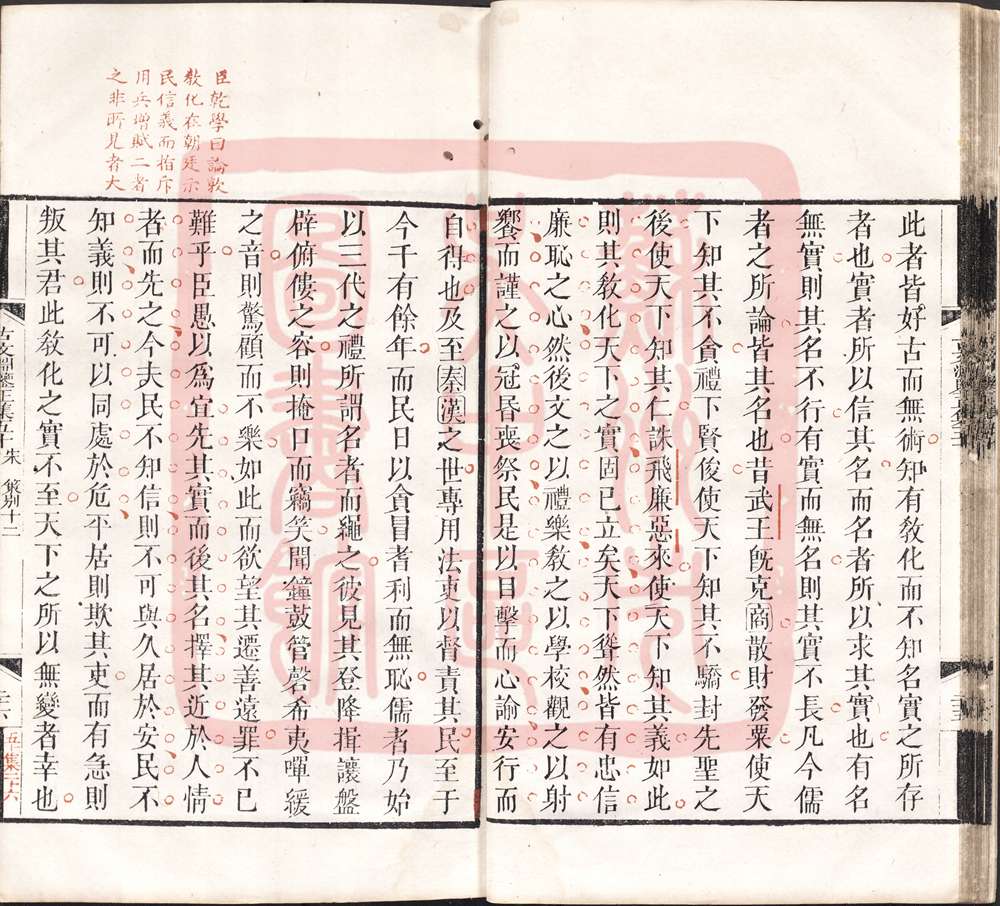 此者皆好古而無術知有敎化而不知名實之所存
者也實者所以信其名而名者所以求其實也有名
無實則其名不行有實而無名則其實不長凡今儒
者之所論皆其名也昔武王旣克商散財發粟使天
下知其不貪禮下賢俊使天下知其不驕封先聖之
後使天下知其仁誅飛廉惡來使天下知其義如此
則其敎化天下之實固已立矣天下聳然皆有忠信
廉恥之心然後文之以禮樂敎之以學校觀之以射
饗而謹之以冠昏喪祭民是以目擊而心諭安行而
自得也及至秦漢之世專用法吏以督責其民至于
今千有餘年而民日以貪冒耆利而無恥儒者乃始
以三代之禮所謂名者而繩之彼見其登降揖讓盤
辟俯僂之容則掩口而竊笑聞鐘鼓管磬希夷嘽緩
之音則驚顧而不樂如此而欲望其遷善遠罪不已
難乎臣愚以爲宜先其實而後其名擇其近於人情
者而先之今夫民不知信則不可與久居於安民不
知義則不可以同處於危平居則欺其吏而有急則
叛其君此敎化之實不至天下之所以無變者幸也
臣乾學曰論敦
敎化在朝廷示
民信義而指斥
用兵增賦二者
之非所見者大
古文淵鑒正集五十 朱 策别十二
二六
五十集二十六